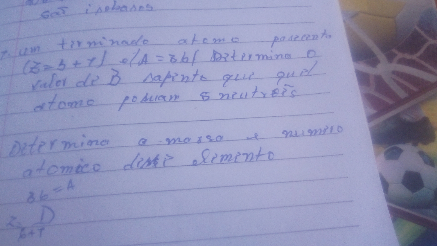 são isobaros
um terminado atomo presenta
(Z=b+1) e (A=8b) Determina o
valor de B sapento que quel
atomo possuam 5 neutrões
Determina a massa e numero
atomico diste Elemento
8b=A
D
Z